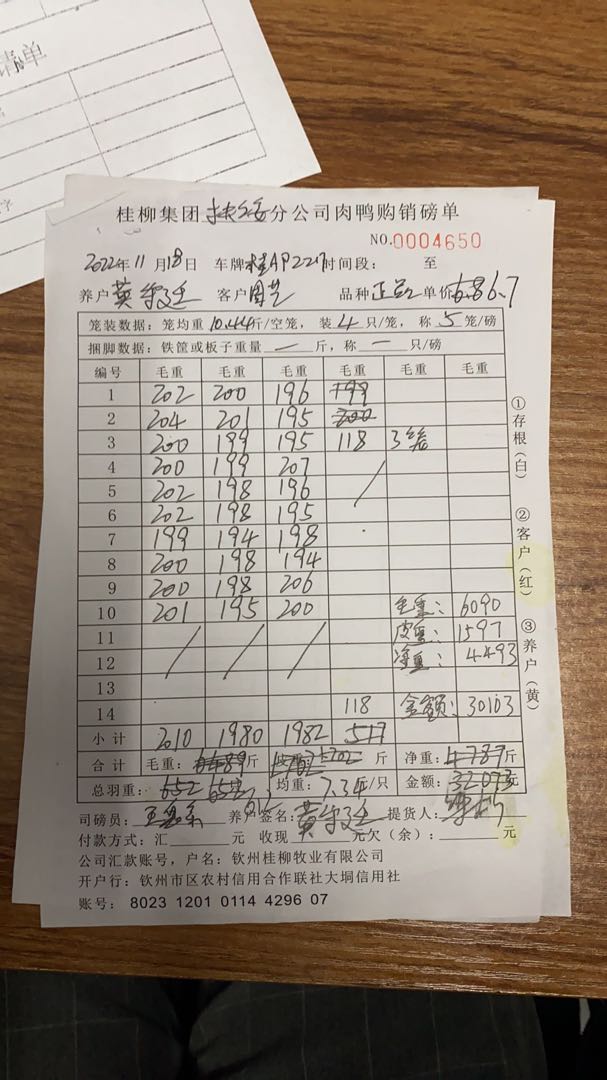 请单
字
桂柳集团扶绥分公司肉鸭购销磅单
NO.0004650
2022年11月18日 车牌桂AP2217时间段: 至
养户黄 客户周 品种正品 单价6.7
笼装数据:笼均重10.44斤/空笼,装4只/笼,称5笼/磅
捆脚数据:铁筐或板子重量一斤,称一只/磅
编号 毛重 毛重 毛重 毛重 毛重 毛重
1 202 200 196 199
2 204 201 195 200
3 200 199 195 118 3笼
4 200 199 207
5 202 198 196
6 202 198 195
7 199 194 198
8 200 198 194
9 200 198 206
10 201 195 200 毛重: 6090
11 皮重: 1597
12 净重: 4493
13
14 118 金额: 30103
小计 2010 1980 1982 517
合计 毛重:6489斤 斤 净重:4787斤
总羽重: 652 612 均重:7.34/只 金额:32073元
司磅员: 养户签名:黄 提货人:
付款方式:汇 元 收现 元欠(余): 元
公司汇款账号,户名:钦州桂柳牧业有限公司
开户行:钦州市区农村信用合作联社大垌信用社
账号: 8023 1201 0114 4296 07
①存根(白)
②客户(红)
③养户(黄)